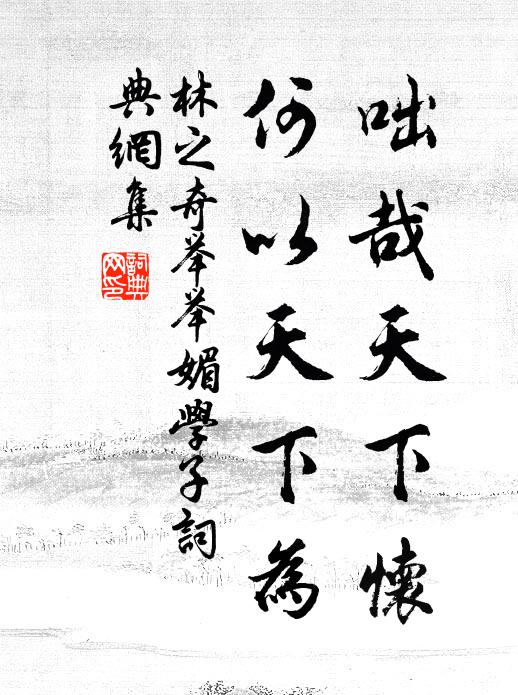 咄哉天下懷
何以天下為
林之奇举举媚學子詞
典網集
詞典网印